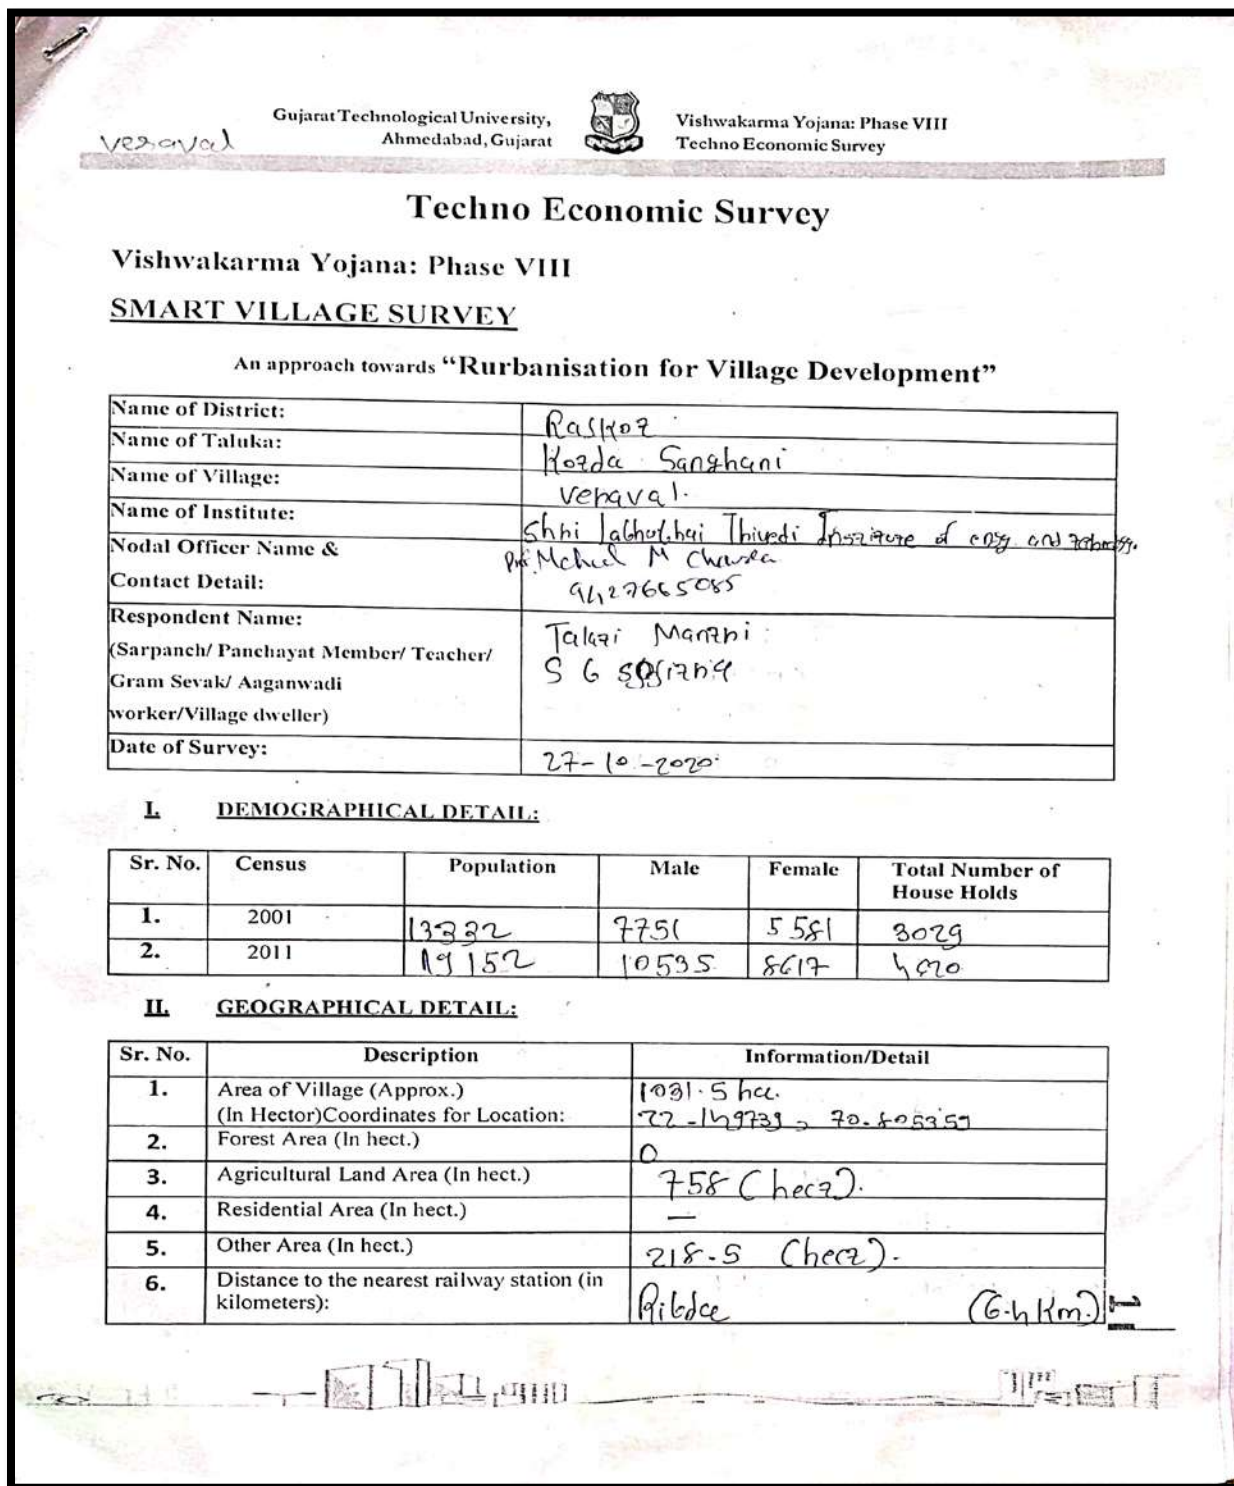 veraval
Gujarat Technological University,
Ahmedabad, Gujarat
Vishwakarma Yojana: Phase VIII
Techno Economic Survey
Techno Economic Survey
Vishwakarma Yojana: Phase VIII
SMART VILLAGE SURVEY
An approach towards “Rurbanisation for Village Development”
Name of District:
Name of Taluka: Sanghani
Name of Village: veraval.
Name of Institute: Shri and
Nodal Officer Name & M
Contact Detail: 9427665085
Respondent Name: Talati Mantri
(Sarpanch/ Panchayat Member/ Teacher/ S G
Gram Sevak/ Aaganwadi
worker/Village dweller)
Date of Survey: 27-10-2020
I. DEMOGRAPHICAL DETAIL:
Sr. No. Census Population Male Female Total Number of
House Holds
1. 2001 13332 7751 5581 3029
2. 2011 19152 10535 8617
II. GEOGRAPHICAL DETAIL:
Sr. No. Description Information/Detail
1. Area of Village (Approx.) 1031.5
(In Hector)Coordinates for Location: 70.805359
2. Forest Area (In hect.) 0
3. Agricultural Land Area (In hect.) 758 (hect).
4. Residential Area (In hect.) —
5. Other Area (In hect.) 218.5 (hect).
6. Distance to the nearest railway station (in
kilometers): Ribda (6.4 Km.)
11